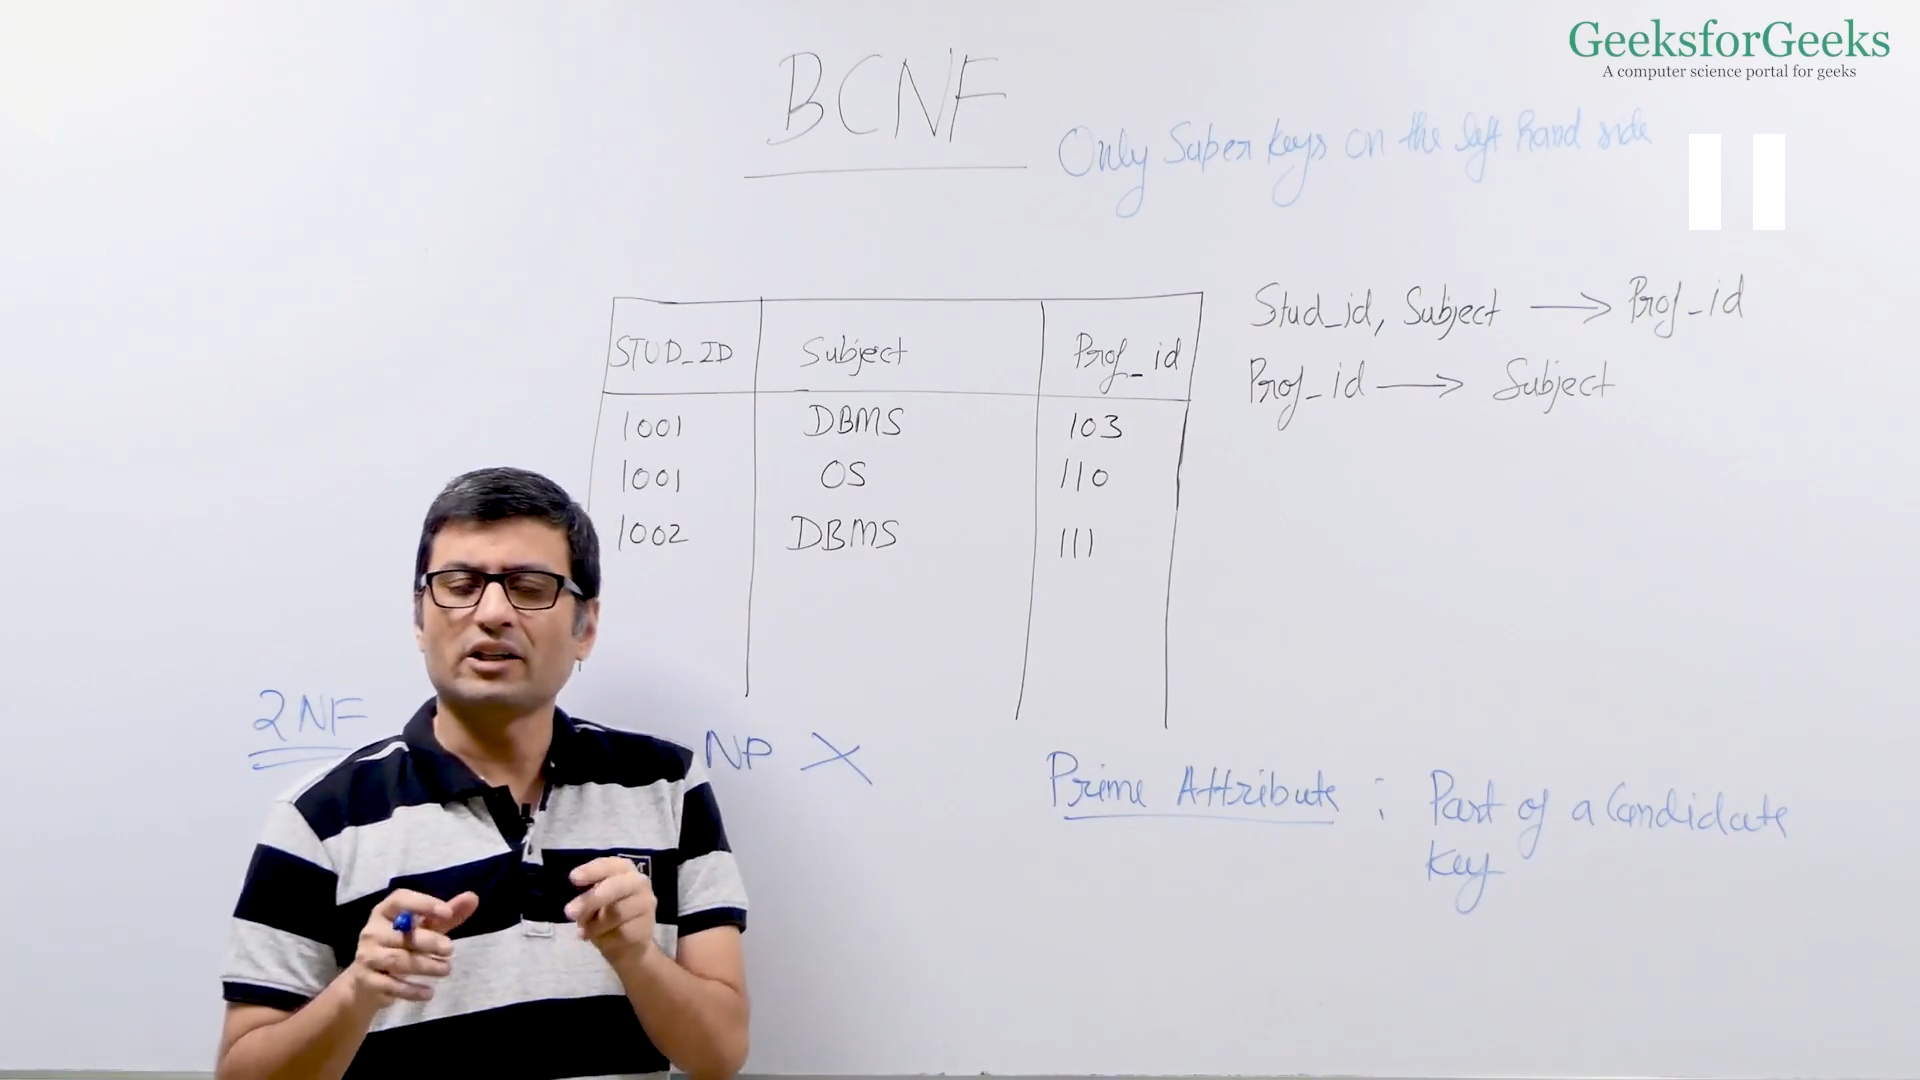 GeeksforGeeks
A computer science portal for geeks
BCNF
Only Super Keys on the left hand side
STUD_ID Subject Prof_id
1001 DBMS 103
1001 OS 110
1002 DBMS 111
Stud_id, Subject → Prof_id
Prof_id → Subject
2NF
NP X
Prime Attribute : Part of a Candidate
Key